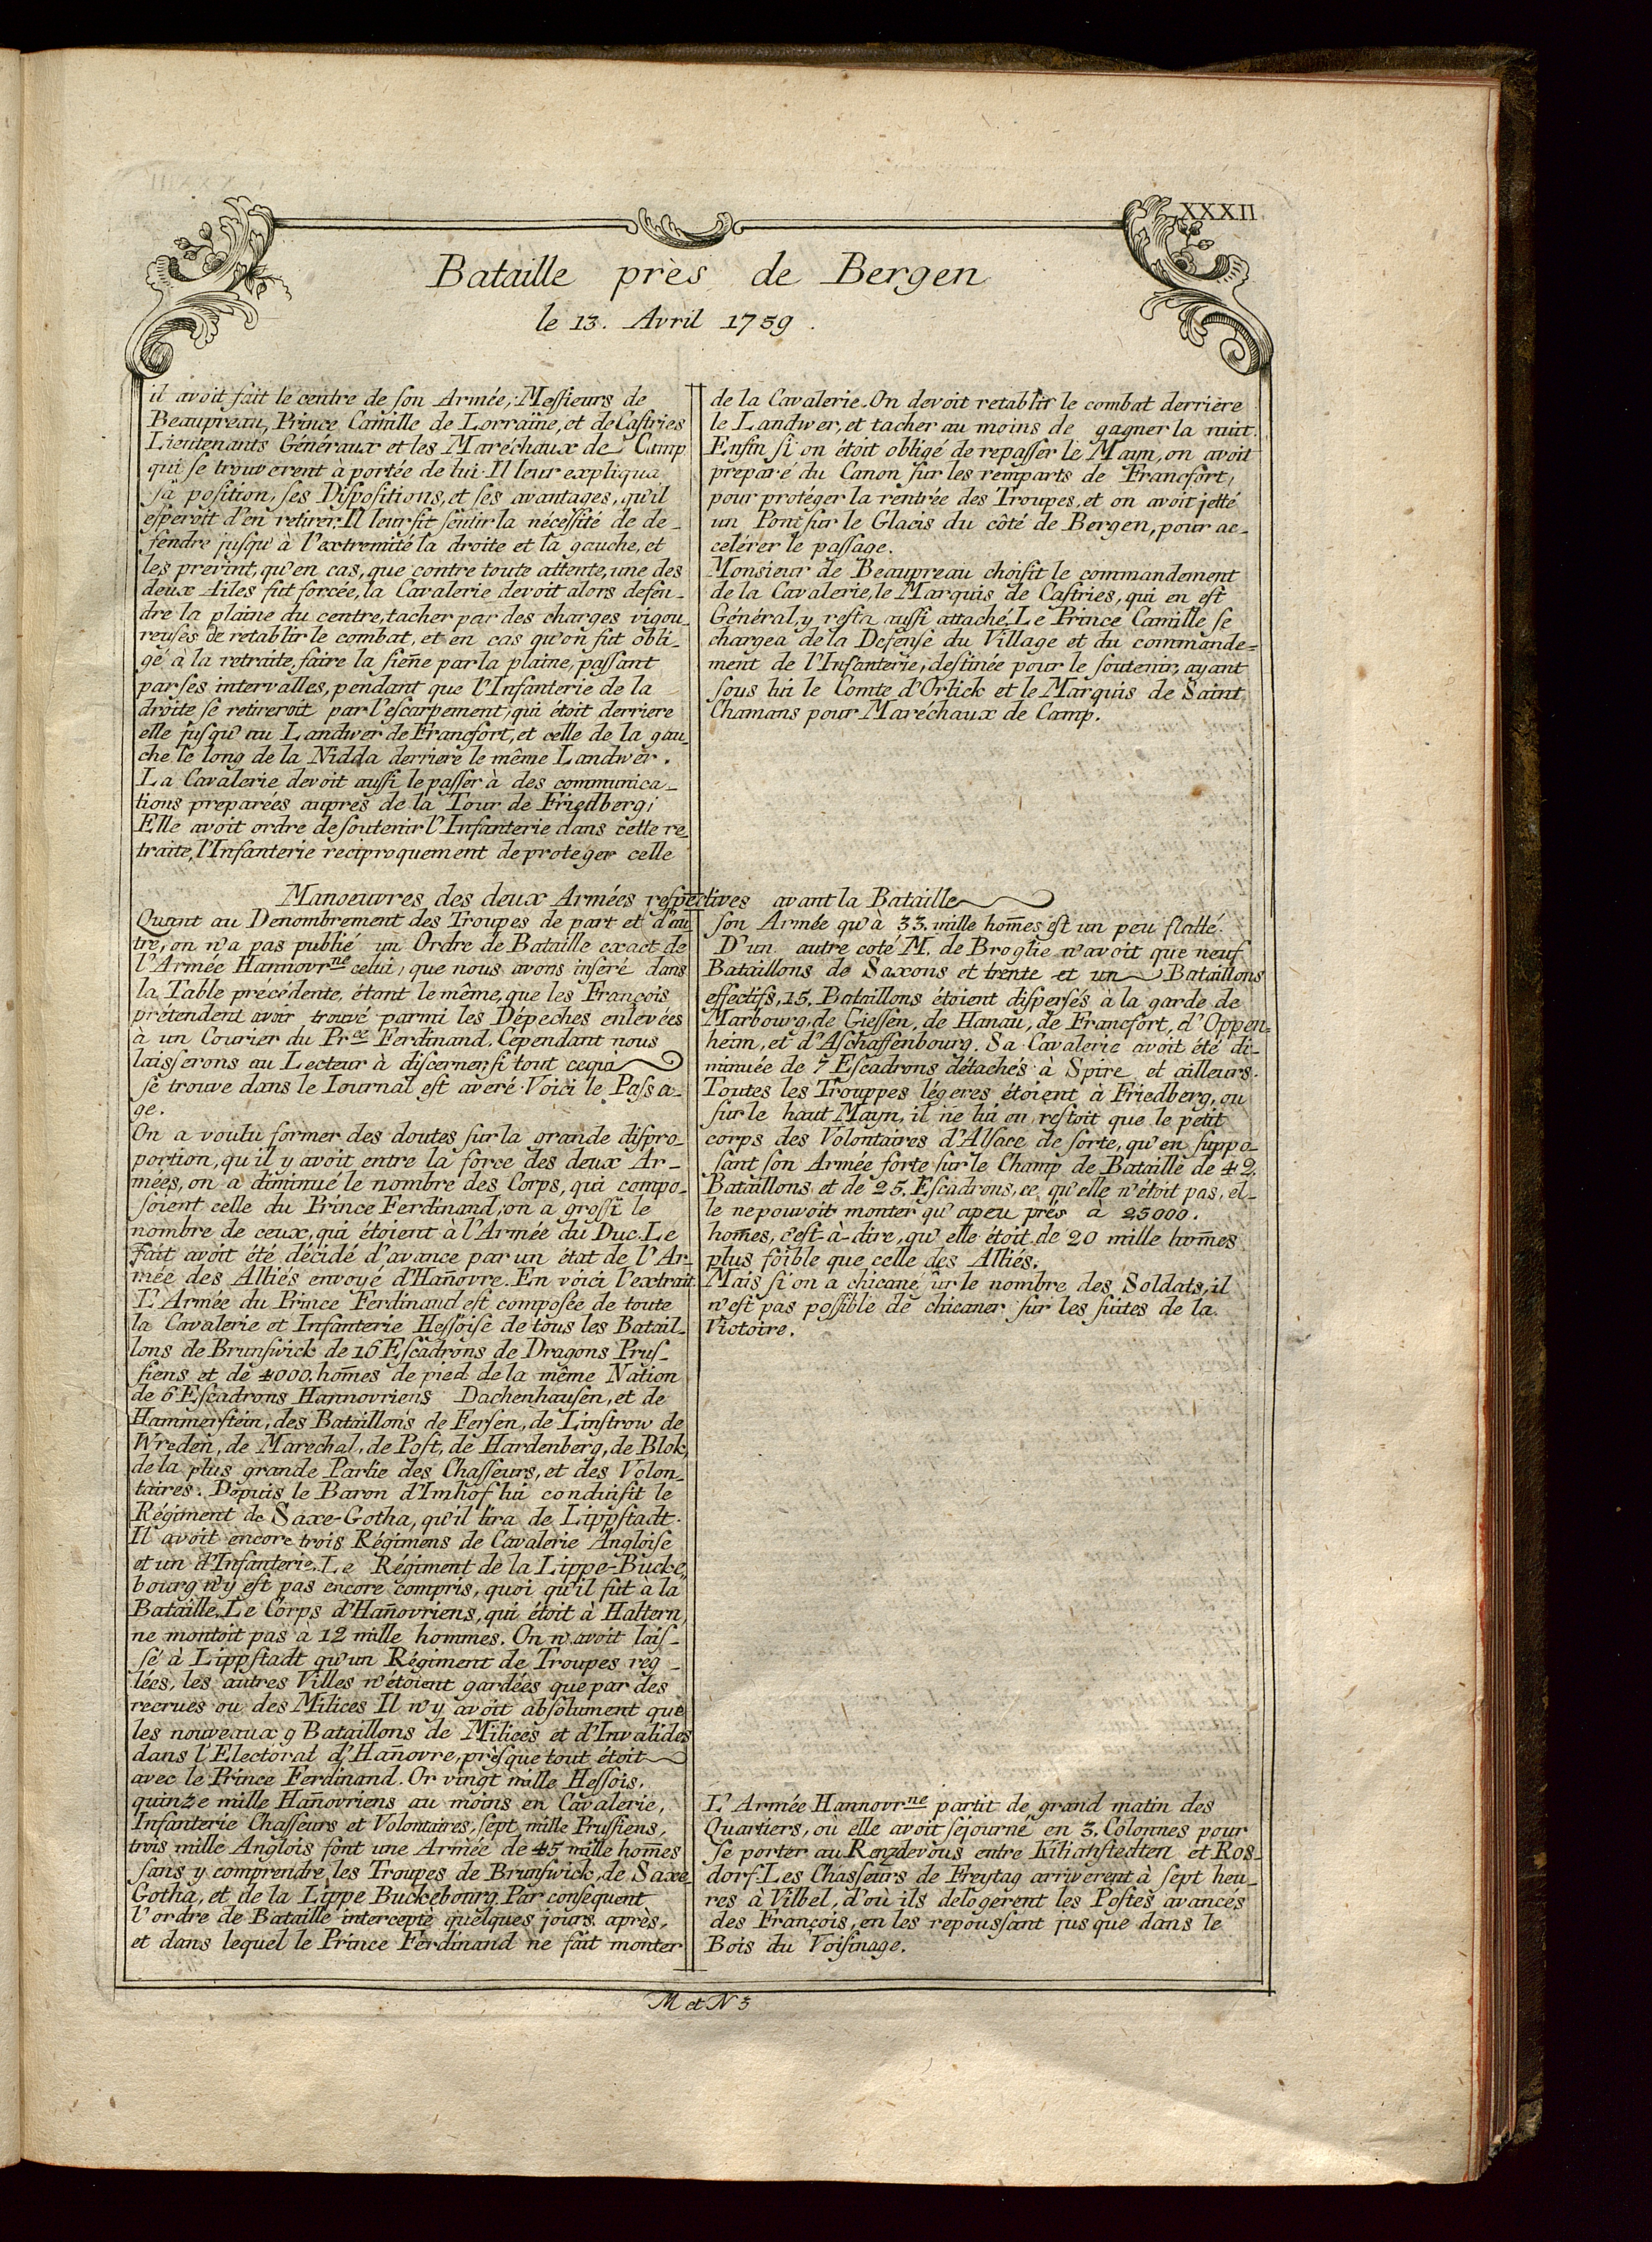 XXXII
Bataille près de Bergen
le 13. Avril 1759.
il avoit fait le centre de ſon Armée, Meſſieurs de
Beaupreau, Prince Camille de Lorraine, et de Caſtries
Lieutenants Généraux et les Maréchaux de Camp
qui ſe trouverent à portée de lui. Il leur expliqua
ſa poſition, ſes Diſpoſitions, et ſes avantages, qu'il
eſperoit d'en retirer. Il leur fit ſentir la néceſſité de de-
fendre juſqu'à l'extremité la droite et la gauche, et
les prevint, qu'en cas, que contre toute attente, une des
deux Ailes fut forcée, la Cavalerie devoit alors defen-
dre la plaine du centre, tacher par des charges vigou-
reuſes de retablir le combat, et en cas qu'on fut obli-
gé à la retraite, faire la ſiene par la plaine, paſſant
par ſes intervalles, pendant que l'Infanterie de la
droite ſe retireroit par l'eſcarpement, qui étoit derriere
elle juſqu'au Landwer de Francfort, et celle de la gau-
che le long de la Nidda derriere le même Landwer.
La Cavalerie devoit auſſi le paſſer à des communica-
tions preparées auprès de la Tour de Friedberg;
Elle avoit ordre de ſoutenir l'Infanterie dans cette re-
traite, l'Infanterie reciproquement de proteger celle
de la Cavalerie. On devoit retablir le combat derriere
le Landwer, et tacher au moins de gagner la nuit.
Enfin ſi on étoit obligé de repaſſer le Mayn, on avoit
preparé du Canon ſur les remparts de Francfort,
pour protéger la rentrée des Troupes, et on avoit jetté
un Pont ſur le Glacis du côté de Bergen, pour ac-
celérer le paſſage.
Monsieur de Beaupreau choiſit le commandement
de la Cavalerie, le Marquis de Caſtries, qui en eſt
Général, y reſta auſſi attaché. Le Prince Camille ſe
chargea de la Defenſe du Village et du commande=
ment de l'Infanterie, deſtinée pour le ſoutenir, ayant
ſous lui le Comte d'Orlick et le Marquis de Saint
Chamans pour Maréchaux de Camp.
Manoeuvres des deux Armées reſpectives avant la Bataille
Quant au Denombrement des Troupes de part et d'au
tre, on n'a pas publié un Ordre de Bataille exact de
l'Armée Hannovrne celui, que nous avons inſeré dans
la Table précédente, étant le même, que les François
prétendent avoir trouvé parmi les Dépeches enlevées
à un Courier du Prce Ferdinand, Cependant nous
laisſerons au Lecteur à diſcerner, ſi tout ceçià
ſe trouve dans le Iournal eſt averé. Voici le Paſsa-
ge.
On a voulu former des doutes ſur la grande diſpro-
portion, qu'il y avoit entre la force des deux Ar-
mées, on a diminué le nombre des Corps, qui compo-
ſoient celle du Prince Ferdinand, on a groſſi le
nombre de ceux, qui étoient à l'Armée du Duc. Le
fait avoit été décidé d'avance par un état de l'Ar-
mée des Alliés envoyé d'Han̄ovre. En voici l'extrait
L'Armée du Prince Ferdinand eſt composée de toute
la Cavalerie et Infanterie Heſſoiſe de tous les Batail-
lons de Brunſwick de 16 Eſcadrons de Dragons Pruſ-
ſiens et de 4000. hom̄es de pied de la même Nation
de 6 Eſcadrons Hannovriens Dachenhauſen, et de
Hammerſtein, des Bataillons de Ferſen, de Linſtrow de
Wreden, de Marechal, de Poſt, de Hardenberg, de Blok,
de la plus grande Partie des Chaſſeurs, et des Volon-
taires. Depuis le Baron d'Imhof lui conduiſit le
Régiment de Saxe-Gotha, qu'il tira de Lippſtadt.
Il avoit encore trois Régimens de Cavalerie Angloiſe
et un d'Infanterie. Le Régiment de la Lippe-Bucke
bourg n'y eſt pas encore compris, quoi qu'il fut à la
Bataille. Le Corps d'Han̄ovriens, qui étoit à Haltern,
ne montoit pas à 12 mille hommes. On n'avoit laiſ-
ſé à Lippſtadt qu'un Régiment de Troupes reg-
lées, les autres Villes n'étoient gardées que par des
recrues ou des Milices Il n'y avoit abſolument que
les nouveaux 9 Bataillons de Milices et d'Invalides
dans l'Electorat d'Han̄ovre, preſque tout étoit
avec le Prince Ferdinand. Or vingt mille Heſſois,
quinze mille Han̄ovriens au moins en Cavalerie,
Infanterie Chaſſeurs et Volontaires, ſept mille Pruſſiens,
trois mille Anglois font une Armée de 45 mille hom̄es
ſans y comprendre les Troupes de Brunſwick, de Saxe
Gotha, et de la Lippe Buckebourg. Par conſequent
l'ordre de Bataille intercepté quelques jours après,
et dans lequel le Prince Ferdinand ne fait monter
ſon Armée qu'à 33. mille hom̄es eſt un peu flatté.
D'un autre coté M. de Broglie n'avoit que neuf
Bataillons de Saxons et trente et un Bataillons
effectifs, 15. Bataillons étoient diſperſés à la garde de
Marbourg, de Gieſſen, de Hanau, de Francfort, d'Oppen=
heim, et d'Aſchaffenbourg. Sa Cavalerie avoit été di-
minuée de 7 Eſcadrons détachés à Spire et ailleurs.
Toutes les Trouppes légeres étoient à Friedberg, ou
ſur le haut Mayn, il ne lui en reſtoit que le petit
corps des Volontaires d'Alſace de ſorte, qu'en ſuppo-
ſant ſon Armée forte ſur le Champ de Bataille de 42.
Bataillons et de 25. Eſcadrons, ce qu'elle n'étoit pas, el-
le ne pouvoit monter qu'apeu près a 25000.
hom̄es, c'eſt-à-dire, qu'elle étoit de 20 mille hom̄es
plus foible que celle des Alliés.
Mais ſi on a chicané ur le nombre des Soldats, il
n'eſt pas poſſible de chicaner ſur les ſuites de la
Victoire.
L'Armée Hannovrne partit de grand matin des
Quartiers, où elle avoit ſéjourné en 3. Colonnes pour
ſe porter au Renzdevous entre Kilianſtedten et Ros-
dorf. Les Chasſeurs de Freytag arriverent à ſept heu-
res à Vilbel, d'où ils delogerent les Poſtes avancés
des François, en les repouſsant jus que dans le
Bois du Voiſinage.
M et N 3